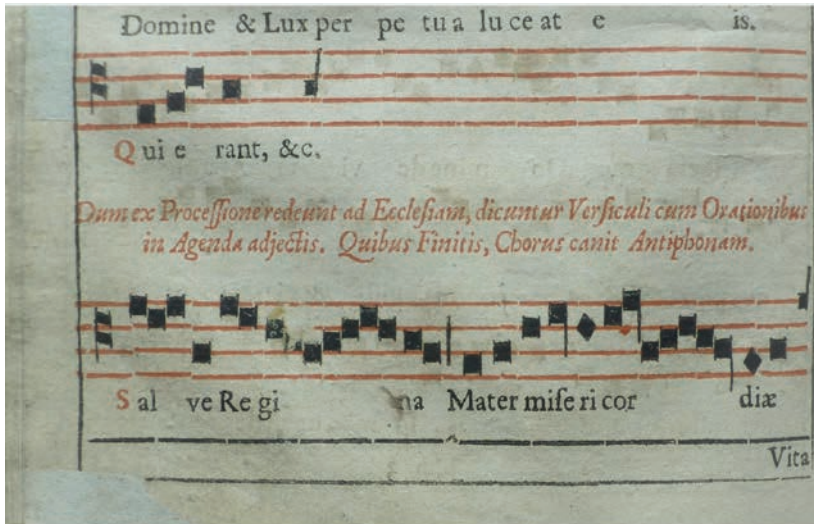 Domine & Lux per pe tu a lu ce at e is.
Qui e rant, &c.
Dum ex Proceſſione redeunt ad Eccleſiam, dicuntur Verſiculi cum Orationibus
in Agenda adjectis. Quibus Finitis, Chorus canit Antiphonam.
Sal ve Re gi na Mater miſe ri cor diæ
Vita